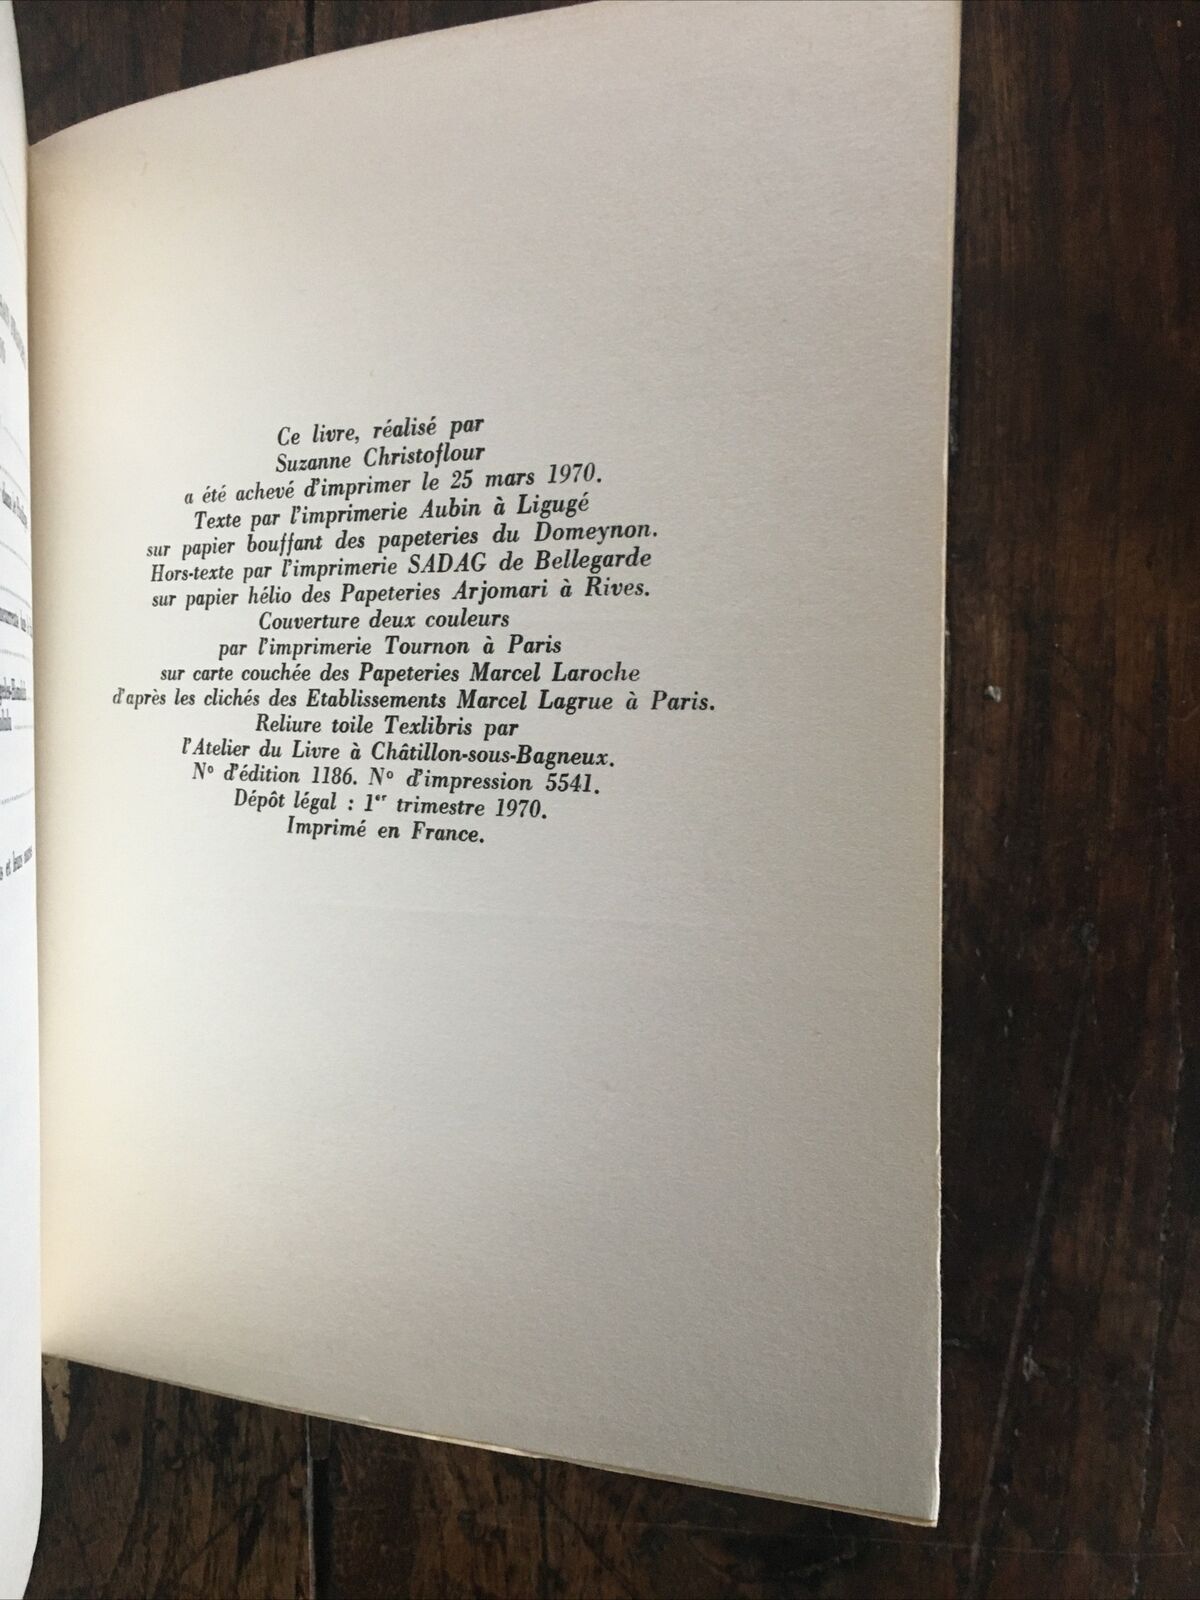 Ce livre, réalisé par
Suzanne Christoflour
a été achevé d'imprimer le 25 mars 1970.
Texte par l'imprimerie Aubin à Ligugé
sur papier bouffant des papeteries du Domeynon.
Hors-texte par l'imprimerie SADAG de Bellegarde
sur papier hélio des Papeteries Arjomari à Rives.
Couverture deux couleurs
par l'imprimerie Tournon à Paris
sur carte couchée des Papeteries Marcel Laroche
d'après les clichés des Etablissements Marcel Lagrue à Paris.
Reliure toile Texlibris par
l'Atelier du Livre à Châtillon-sous-Bagneux.
N° d'édition 1186. N° d'impression 5541.
Dépôt légal : 1er trimestre 1970.
Imprimé en France.